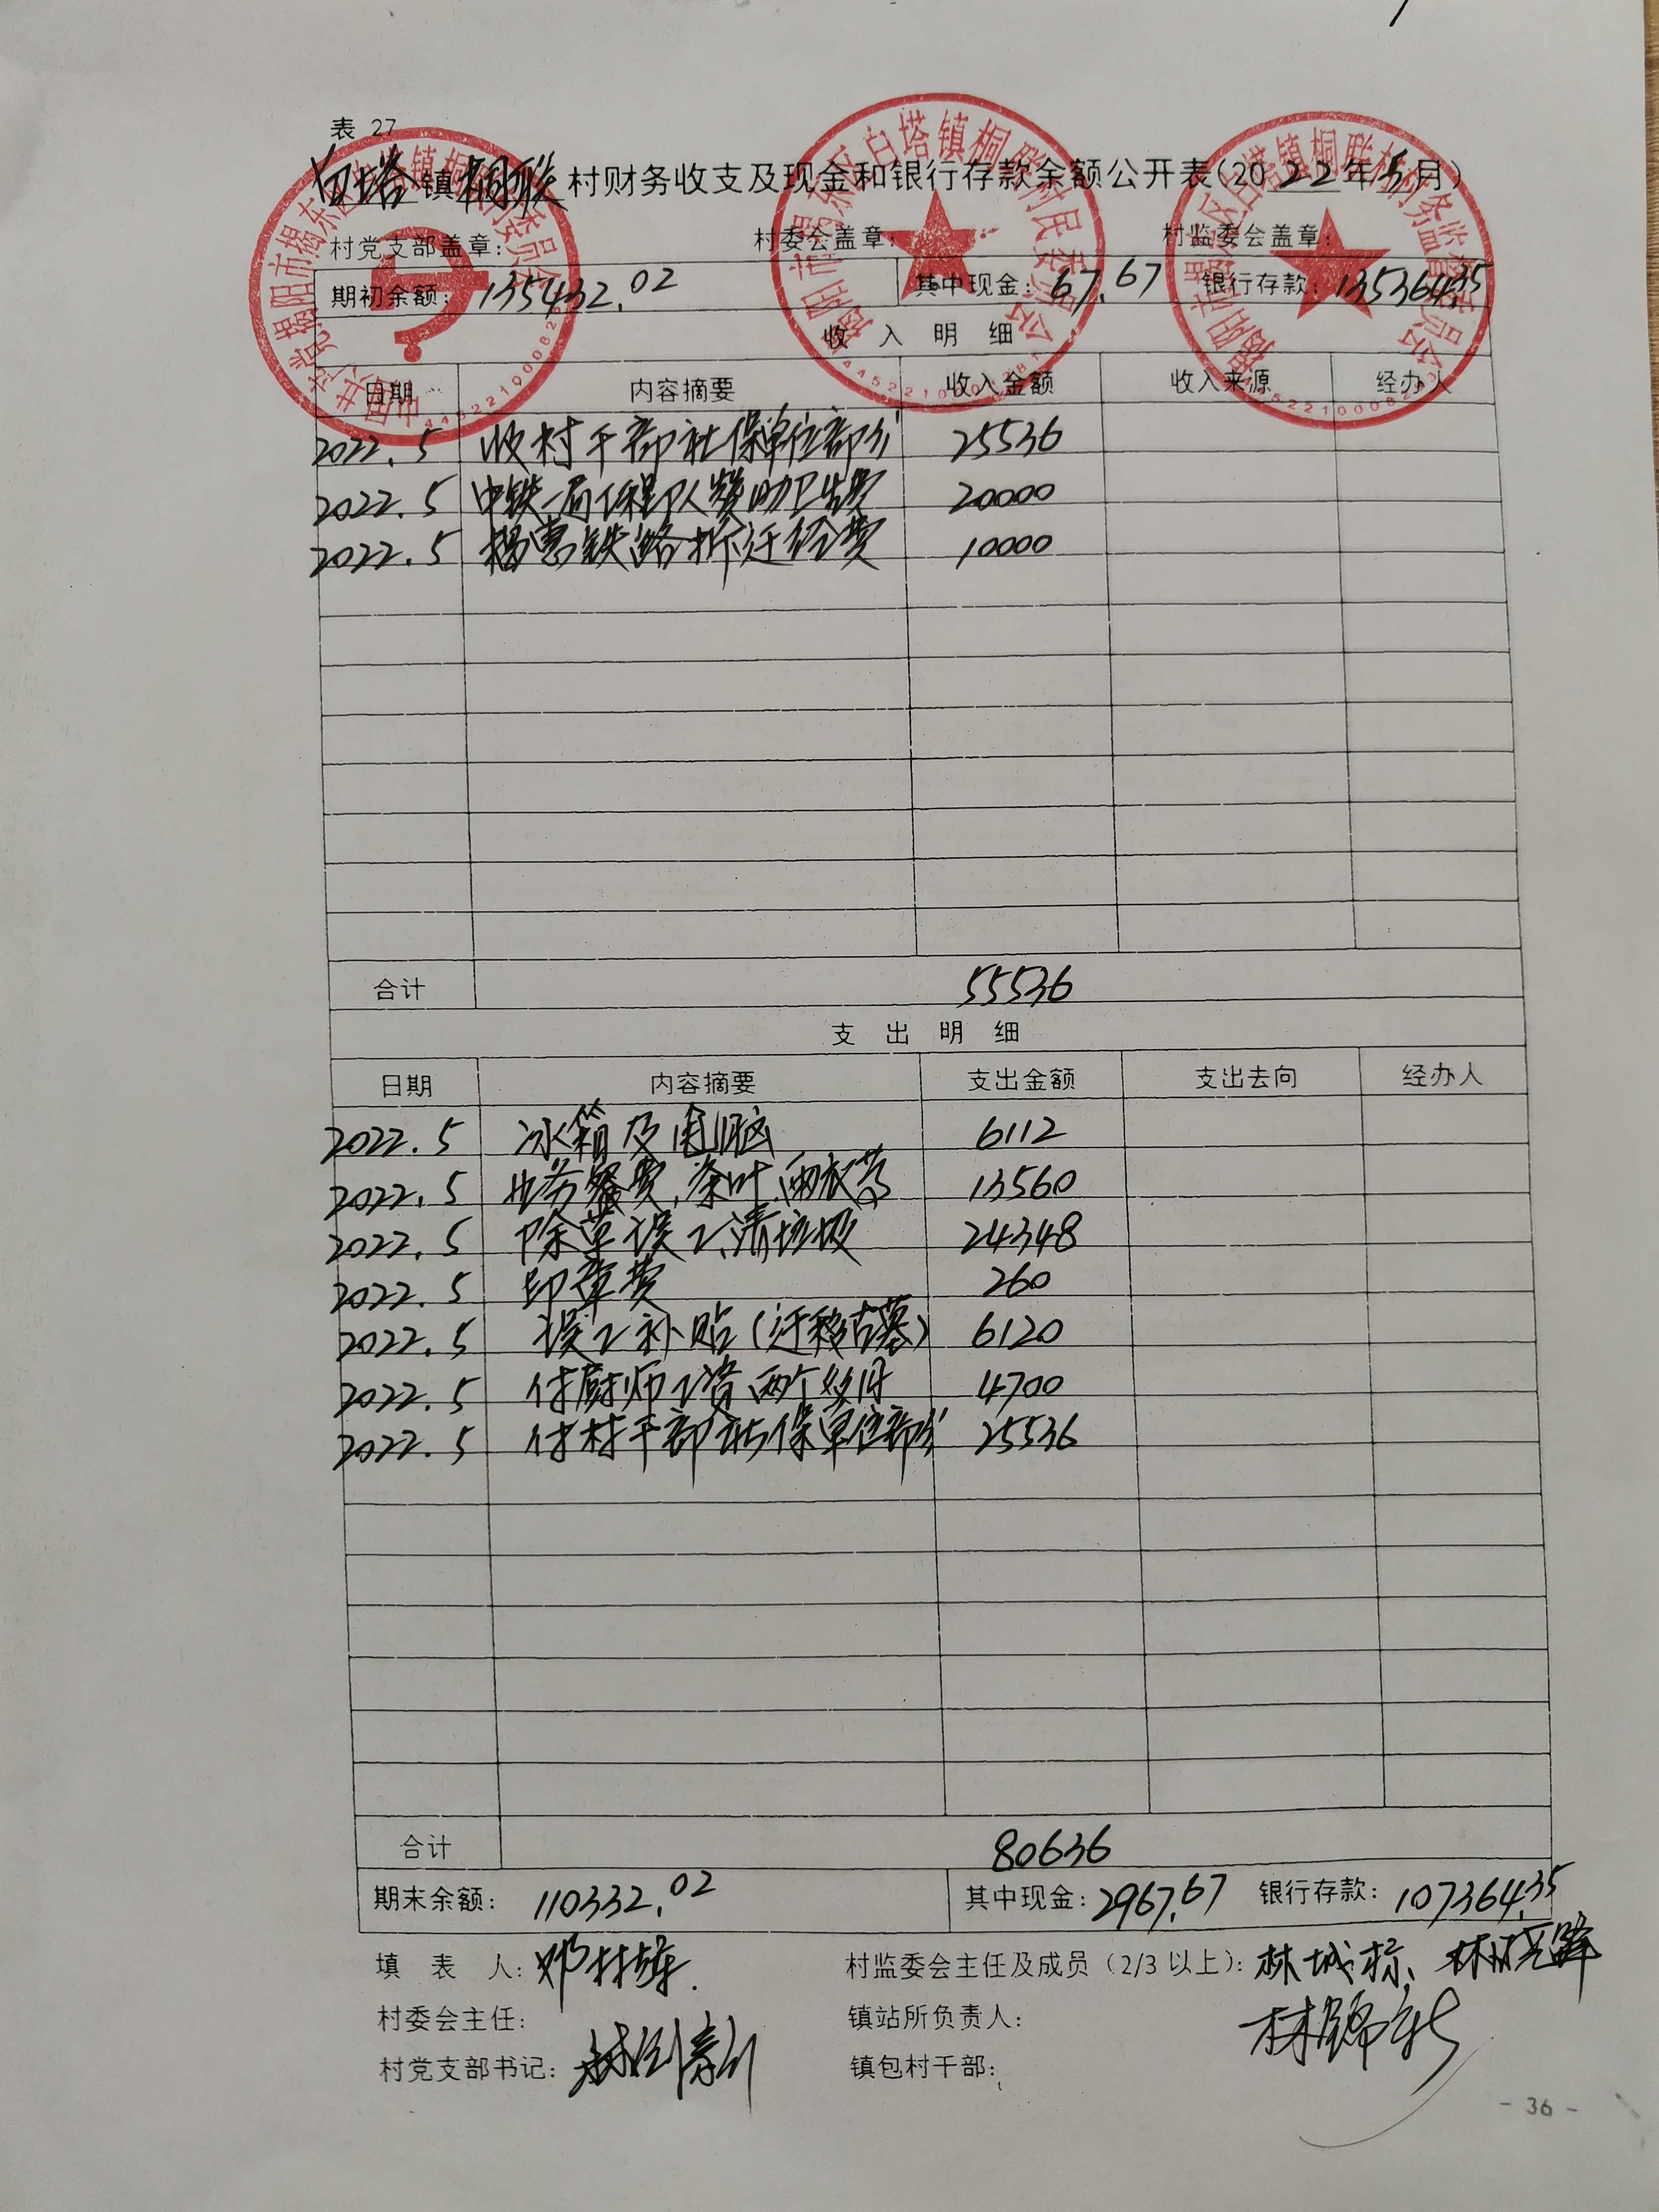 表 27
白塔镇桐联村财务收支及现金和银行存款余额公开表(2022年5月)
村党支部盖章: 村委会盖章: 村监委会盖章:
期初余额: 135432.02 其中现金: 67.67 银行存款: 135364.35
收入明细
日期 内容摘要 收入金额 收入来源 经办人
2022.5 收村干部社保单位部分 25536
2022.5 中铁一局工程队人赞助卫生费 20000
2022.5 揭惠铁路拆迁经费 10000
合计 55536
支出明细
日期 内容摘要 支出金额 支出去向 经办人
2022.5 冰箱及电脑 6112
2022.5 业务餐费、茶叶、雨衣等 13560
2022.5 除草误工、清垃圾 24348
2022.5 印章费 260
2022.5 误工补贴(迁移古墓) 6120
2022.5 付厨师工资两个多月 4700
2022.5 付村干部社保单位部分 25536
合计 80636
期末余额: 110332.02 其中现金: 2967.67 银行存款: 107364.35
填表人: 村监委会主任及成员(2/3以上): 林城标、
村委会主任: 镇站所负责人:
村党支部书记: 镇包村干部:
- 36 -